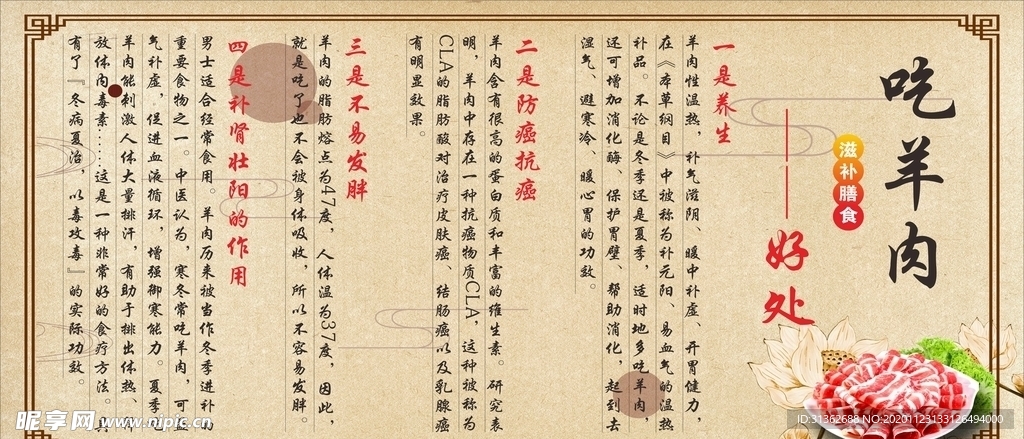 吃羊肉
滋补膳食
———好处
一是养生
羊肉性温热，补气滋阴、暖中补虚、开胃健力，
在《本草纲目》中被称为补元阳、易血气的温热
补品。不论是冬季还是夏季，适时地多吃羊肉，
还可增加消化酶、保护胃壁、帮助消化，起到去
湿气、避寒冷、暖心胃的功效。
二是防癌抗癌
羊肉含有很高的蛋白质和丰富的维生素。研究表
明，羊肉中存在一种抗癌物质CLA，这种被称为
CLA的脂肪酸对治疗皮肤癌、结肠癌以及乳腺癌
有明显效果。
三是不易发胖
羊肉的脂肪熔点为47度，人体温为37度，因此，
就是吃了也不会被身体吸收，所以不容易发胖。
四是补肾壮阳的作用
男士适合经常食用。羊肉历来被当作冬季进补
重要食物之一。中医认为，寒冬常吃羊肉，可益
气补虚，促进血液循环，增强御寒能力。夏季
羊肉能刺激人体大量排汗，有助于排出体热、
放体内毒素……这是一种非常好的食疗方法。具
有了『冬病夏治，以毒攻毒』的实际功效。
昵享网 www.nipic.cn
ID:31362688 NO:20201123133126494000